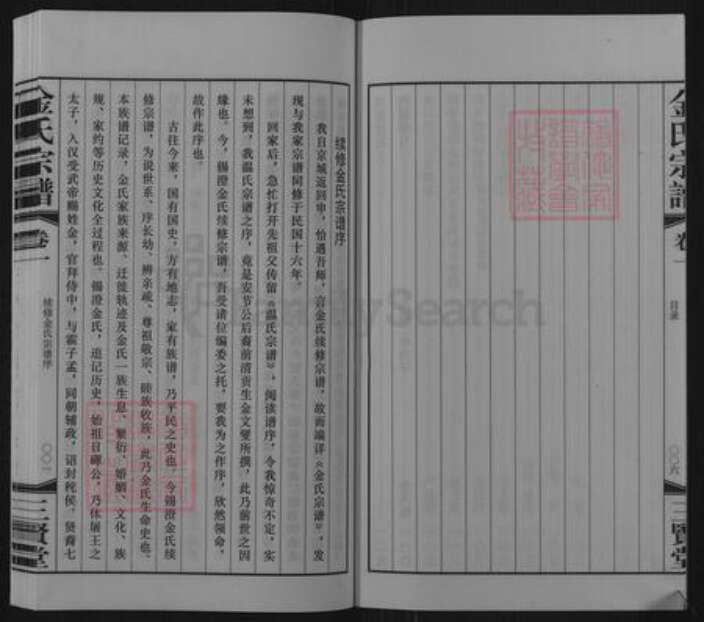 金氏宗譜
卷一
目录
〇〇六
三賢堂
续修金氏宗谱序
我自京城返回中，恰遇吾师，言金氏续修宗谱，故而端详《金氏宗谱》，发
现与我家宗谱同修于民国十六年。
回家后，急忙打开先祖父传留《温氏宗谱》，阅读谱序，令我惊奇不定，实
未想到，我温氏宗谱之序，竟是安节公后裔前清贡生金文燮所撰，此乃前世之因
缘也。今，锡澄金氏续修宗谱，吾受诸位编委之托，要我为之作序，欣然领命，
故作此序也。
古往今来，国有国史，方有地志，家有族谱，乃平民之史也。今锡澄金氏续
修宗谱，为说世系、序长幼、辨亲疏、尊祖敬宗、睦族收族，此乃金氏生命史也、
本族谱记录，金氏家族来源、迁徙轨迹及金氏一族生息、繁衍、婚姻、文化、族
规、家约等历史文化全过程也。锡澄金氏，追记历史，始祖日磾公，乃休屠王之
太子，入汉受武帝赐姓金，官拜侍中，与霍子孟，同朝辅政，诏封秺侯，贤裔七
金氏宗譜
卷一
续修金氏宗谱序
〇〇一
三賢堂
FamilySearch